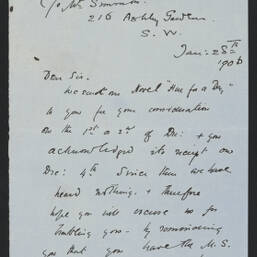 c/o Mr Simmons
216 Ashley Gardens
S. W.
Jan: 28th
1906
Dear Sir.
We sent our Novel "Hue for a Day"
to you for your consideration
on the 1st or 2nd of Dec: & you
acknowledged its receipt on
Dec: 4th. Since then we have
heard nothing. & therefore
hope you will excuse us for
troubling you - by reminding
you that you have the M.S.